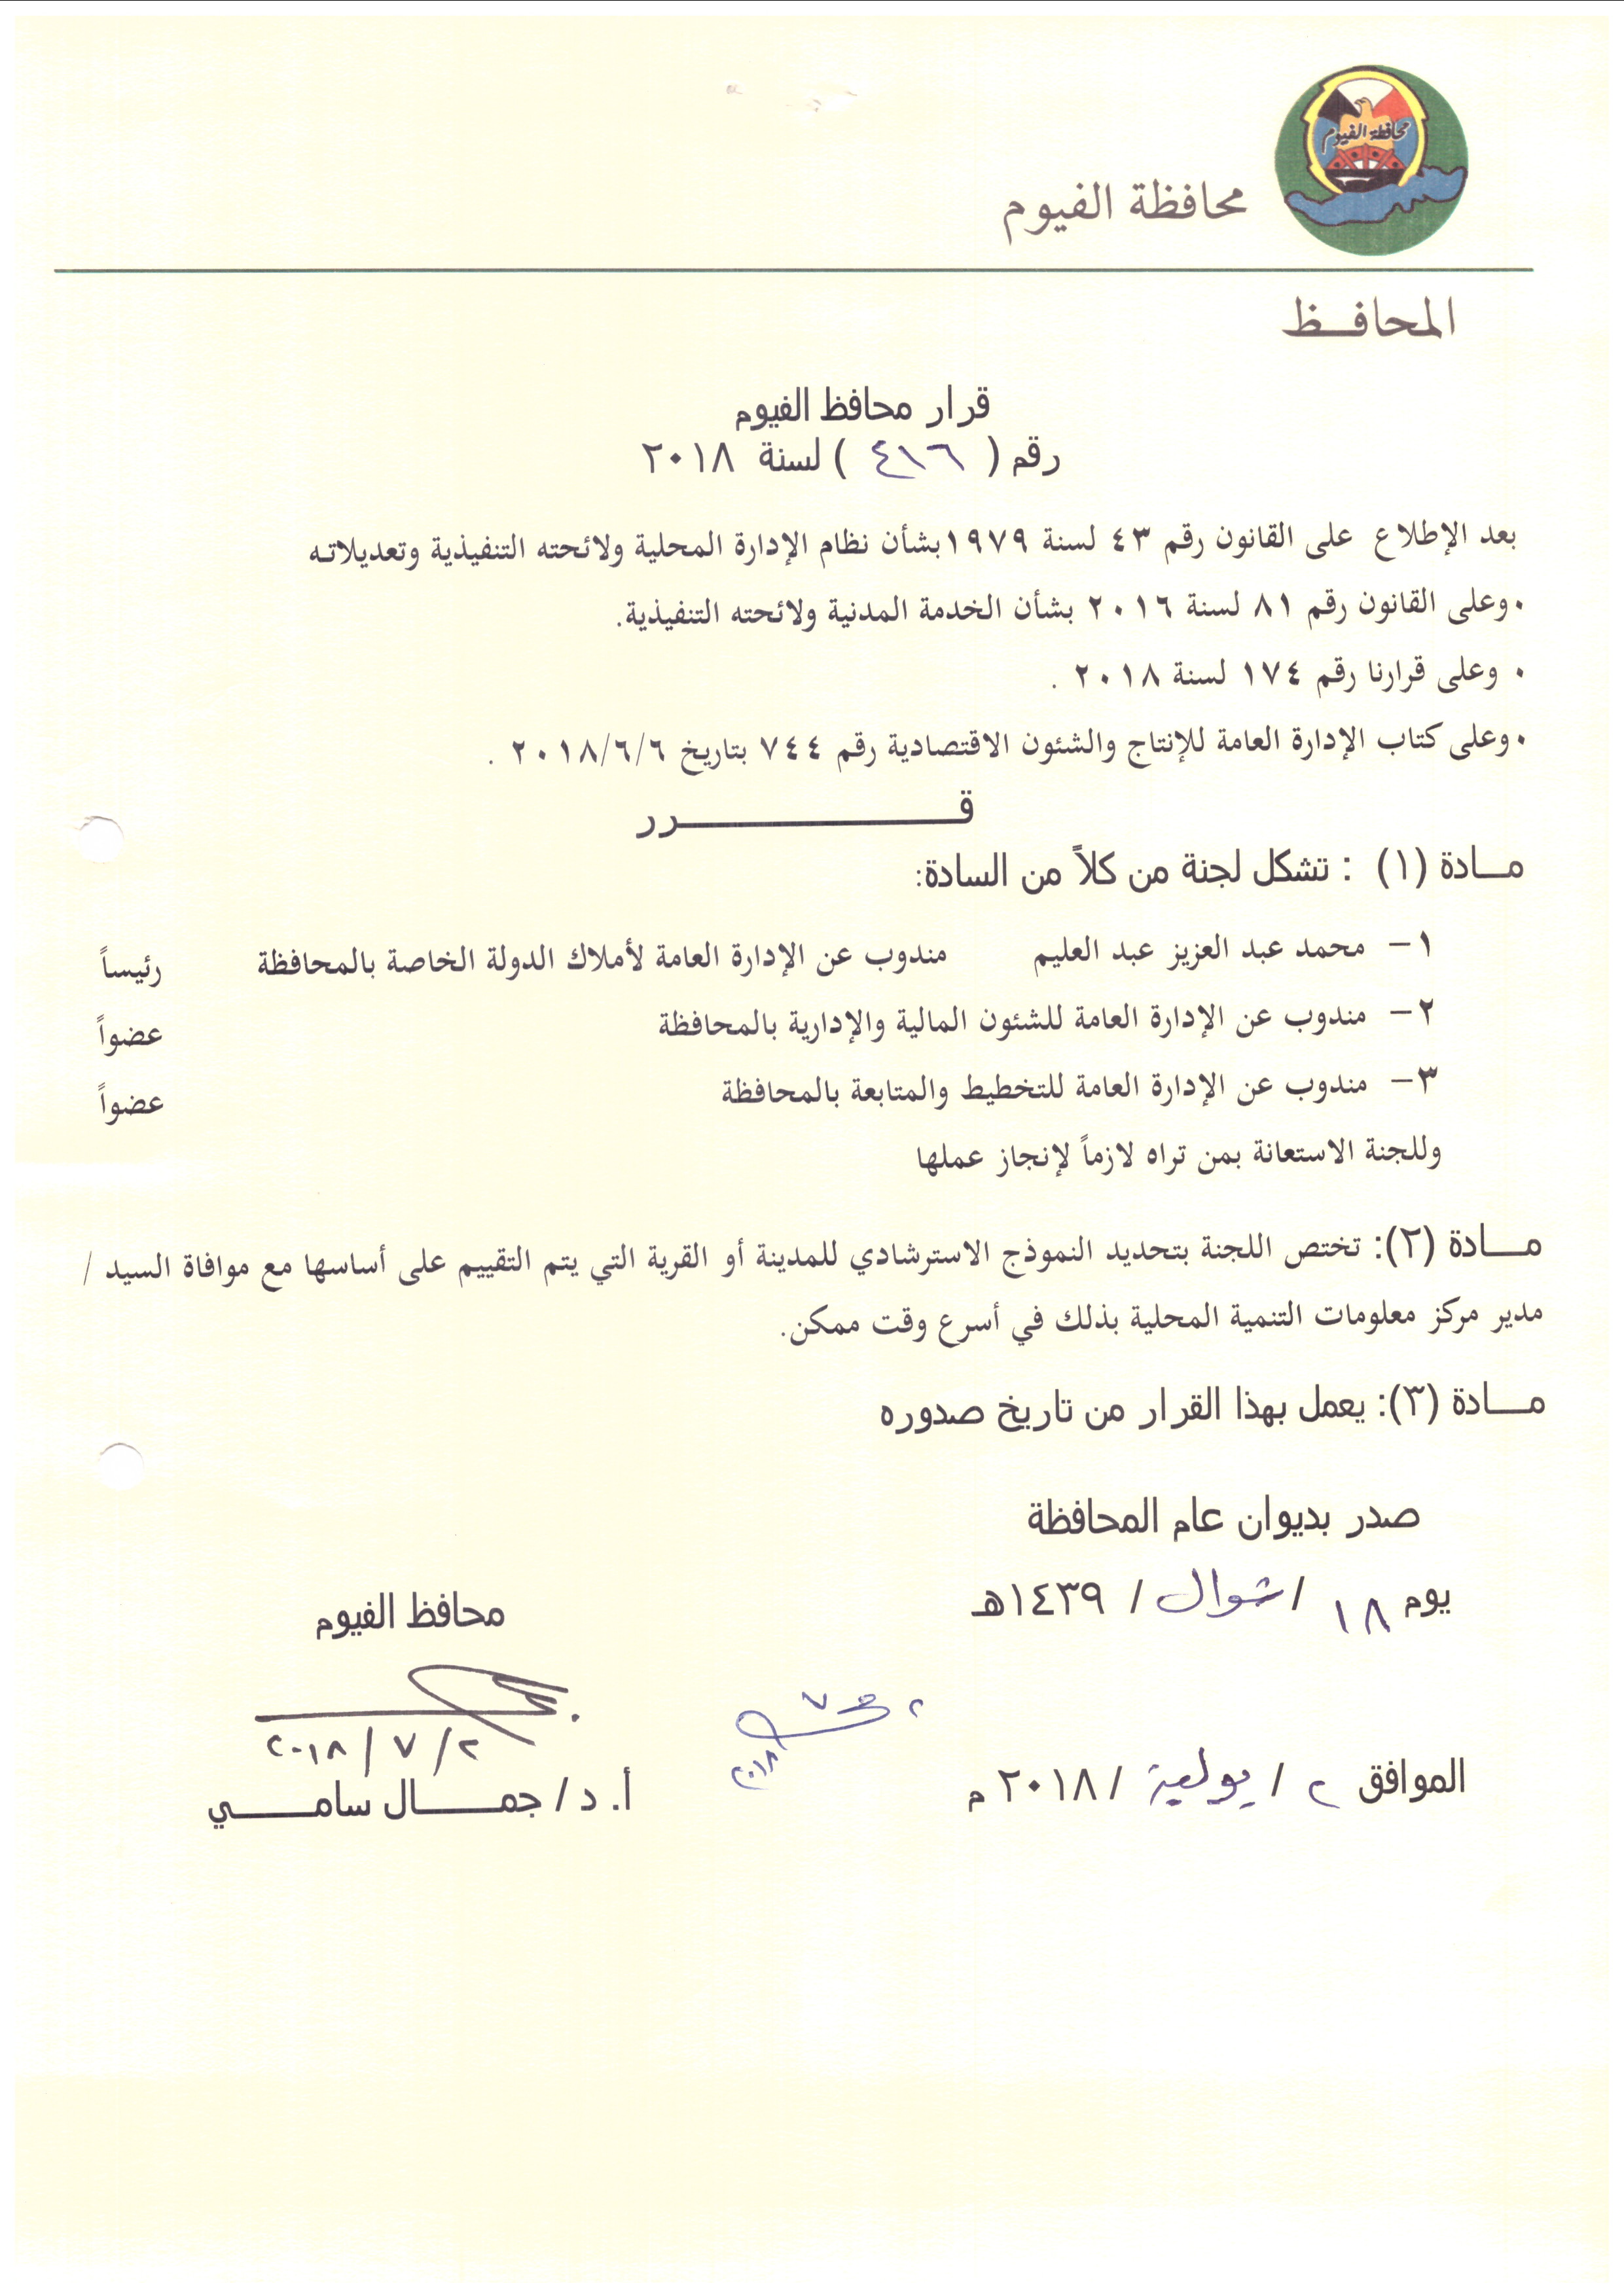 محافظة الفيوم
محافظة الفيوم
المحافـــظ
قرار محافظ الفيوم
رقم ( ٤١٦ ) لسنة ٢٠١٨
بعد الإطلاع على القانون رقم ٤٣ لسنة ١٩٧٩بشأن نظام الإدارة المحلية ولائحته التنفيذية وتعديلاتـه
• وعلى القانون رقم ٨١ لسنة ٢٠١٦ بشأن الخدمة المدنية ولائحته التنفيذية.
• وعلى قرارنا رقم ١٧٤ لسنة ٢٠١٨ .
• وعلى كتاب الإدارة العامة للإنتاج والشئون الاقتصادية رقم ٧٤٤ بتاريخ ٢٠١٨/٦/٦ .
قـــــــــــــــرر
مـــادة (١) : تشكل لجنة من كلاً من السادة:
١- محمد عبد العزيز عبد العليم مندوب عن الإدارة العامة لأملاك الدولة الخاصة بالمحافظة رئيساً
٢- مندوب عن الإدارة العامة للشئون المالية والإدارية بالمحافظة عضواً
٣- مندوب عن الإدارة العامة للتخطيط والمتابعة بالمحافظة عضواً
وللجنة الاستعانة بمن تراه لازماً لإنجاز عملها
مـــادة (٢): تختص اللجنة بتحديد النموذج الاسترشادي للمدينة أو القرية التي يتم التقييم على أساسها مع موافاة السيد /
مدير مركز معلومات التنمية المحلية بذلك في أسرع وقت ممكن.
مـــادة (٣): يعمل بهذا القرار من تاريخ صدوره
صدر بديوان عام المحافظة
يوم ١٨ / شوال / ١٤٣٩هـ
محافظ الفيوم
٢٠١٨/٧/٢
الموافق ٢ / يولية / ٢٠١٨ م
أ. د/ جمـــــال سامـــــي